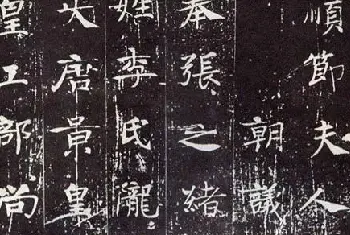 順節夫人
朝議
奉張之緒
姓李氏隴
大唐景皇
皇工部尚